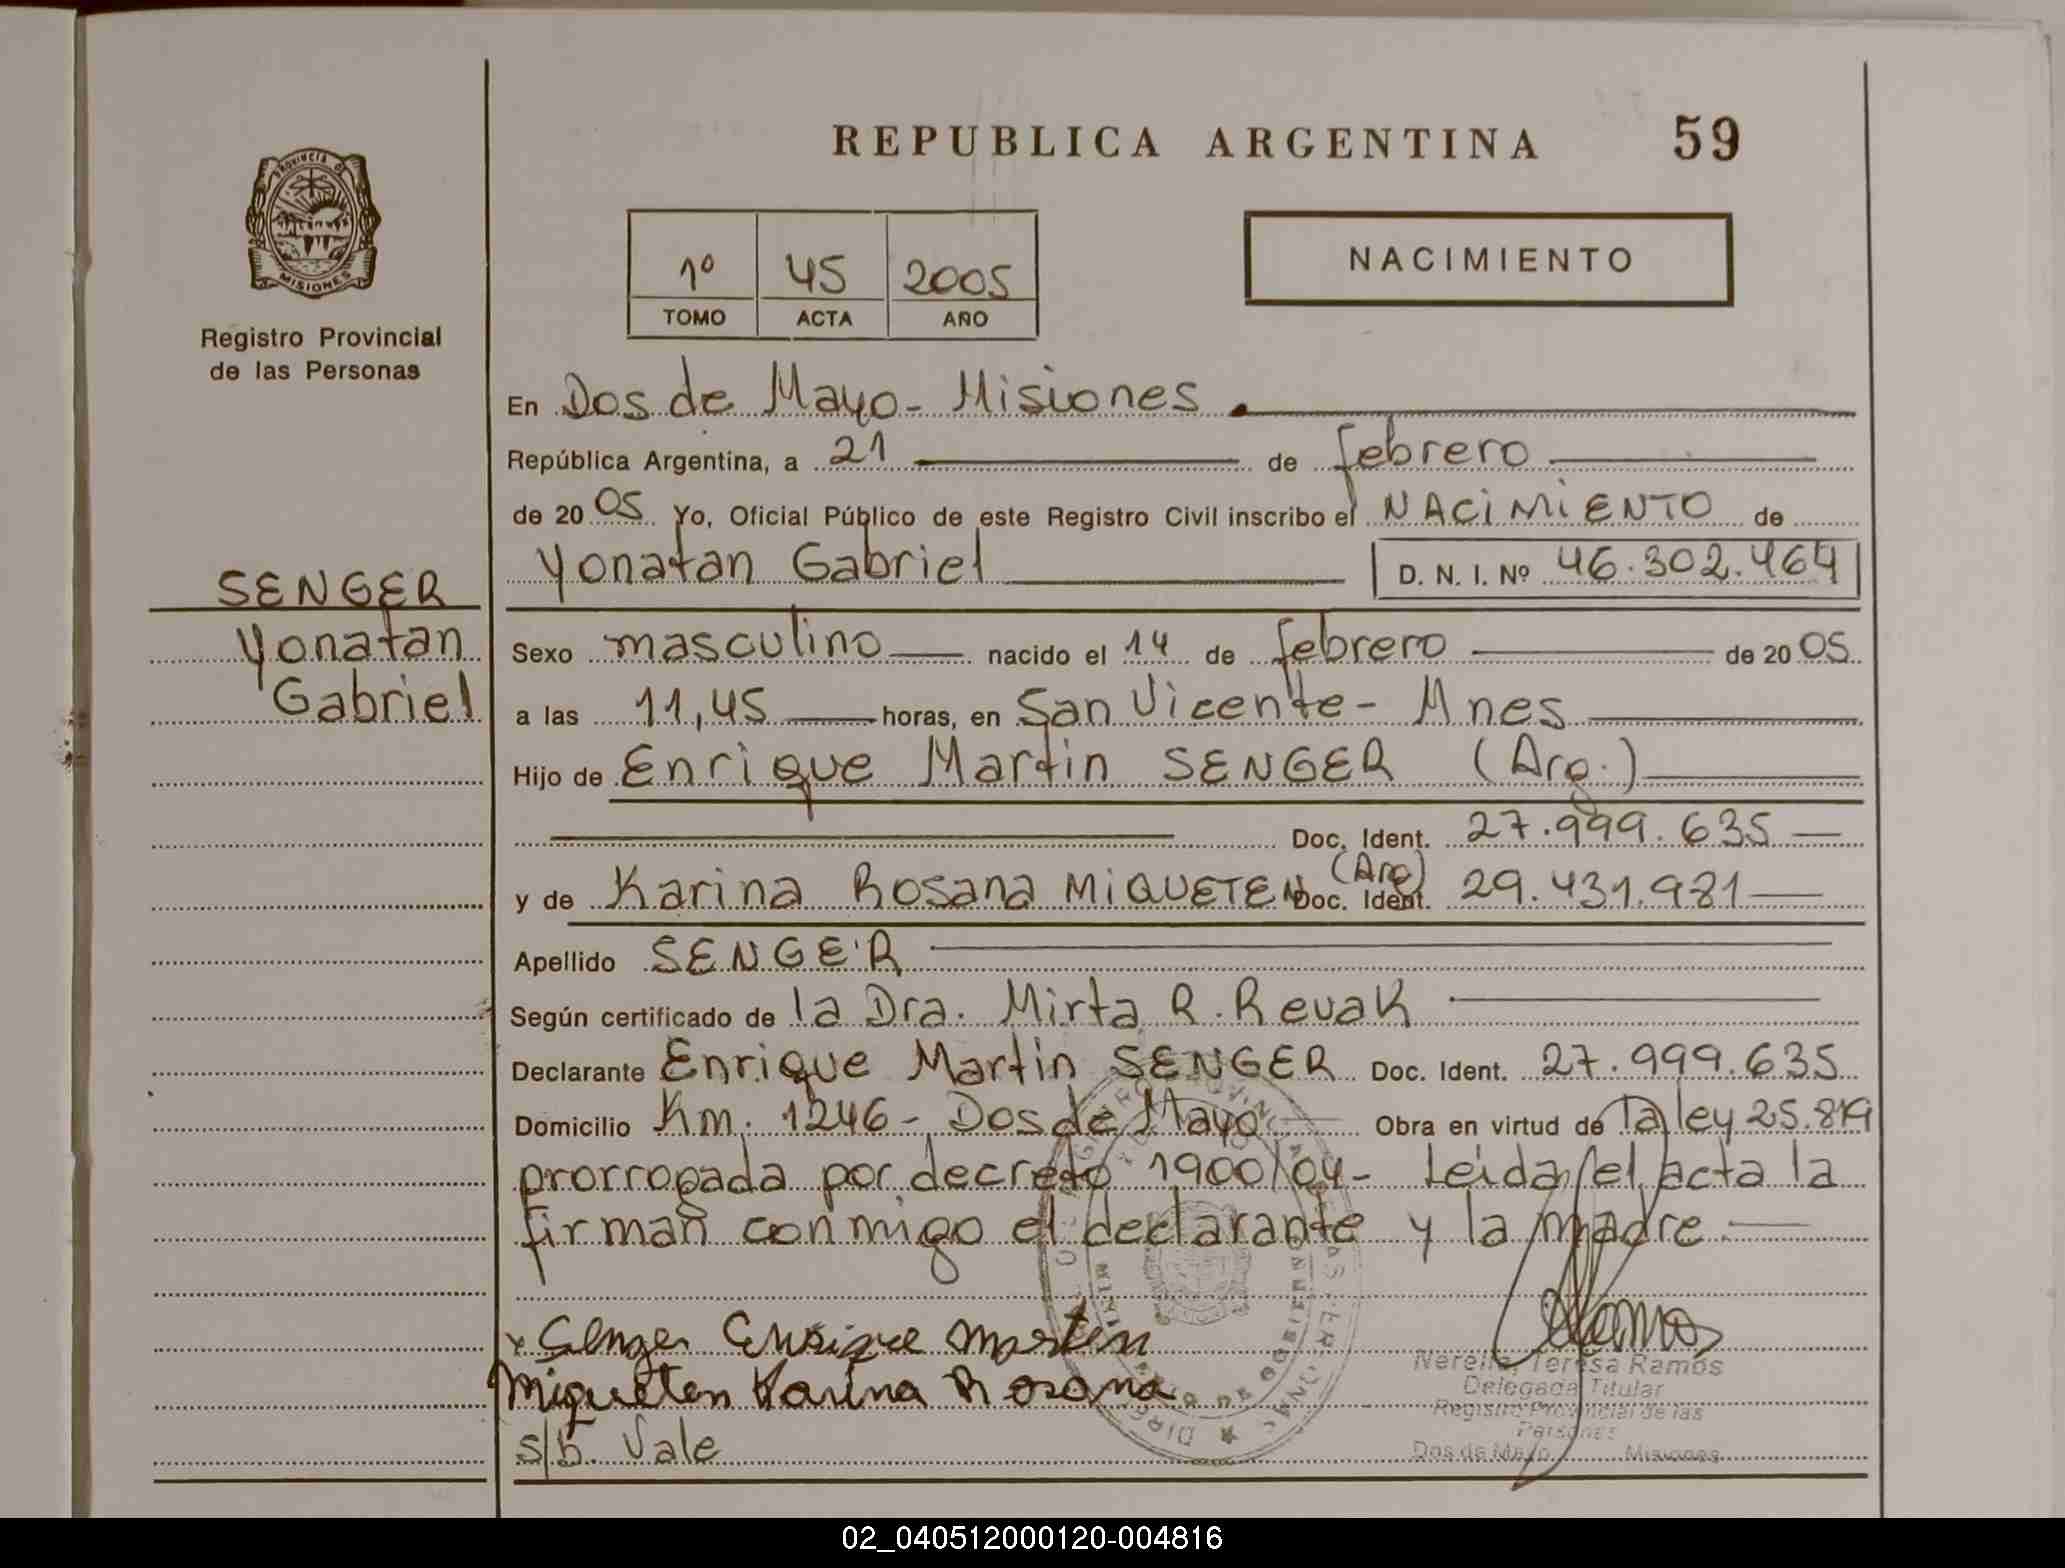 REPUBLICA ARGENTINA 59
PROVINCIA DE MISIONES
Registro Provincial
de las Personas
1º 45 2005
TOMO ACTA AÑO
NACIMIENTO
En Dos de Mayo - Misiones
República Argentina, a 21 de febrero
de 20 05 Yo, Oficial Público de este Registro Civil inscribo el NACIMIENTO de
Yonatan Gabriel D. N. I. Nº 46.302.464
SENGER
Yonatan
Gabriel
Sexo masculino nacido el 14 de febrero de 20 05
a las 11,45 horas, en San Vicente - Mnes
Hijo de Enrique Martin SENGER (Arg.)
Doc. Ident. 27.999.635
y de Karina Rosana MIQUETEN (Arg) Doc. Ident. 29.431.981
Apellido SENGER
Según certificado de la Dra. Mirta R. Revak
Declarante Enrique Martin SENGER Doc. Ident. 27.999.635
Domicilio Km. 1246 - Dos de Mayo Obra en virtud de la ley 25.819
prorrogada por decreto 1900/04 - Leida el acta la
firman conmigo el declarante y la madre
x Senger Enrique Martin
Miqueten Karina Rosana
s/b. Vale
Teresa Ramos
Delegada Titular
Registro Provincial de las
Personas
Dos de Mayo Misiones
02_040512000120-004816